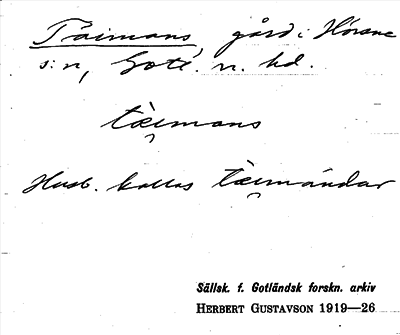 Täimans, gård i Hörsne
s:n, Gotl. n. hd.
tæi̯mans
Husb. kallas tæi̯mándar
Sällsk. f. Gotländsk forskn. arkiv
HERBERT GUSTAVSON 1919—26